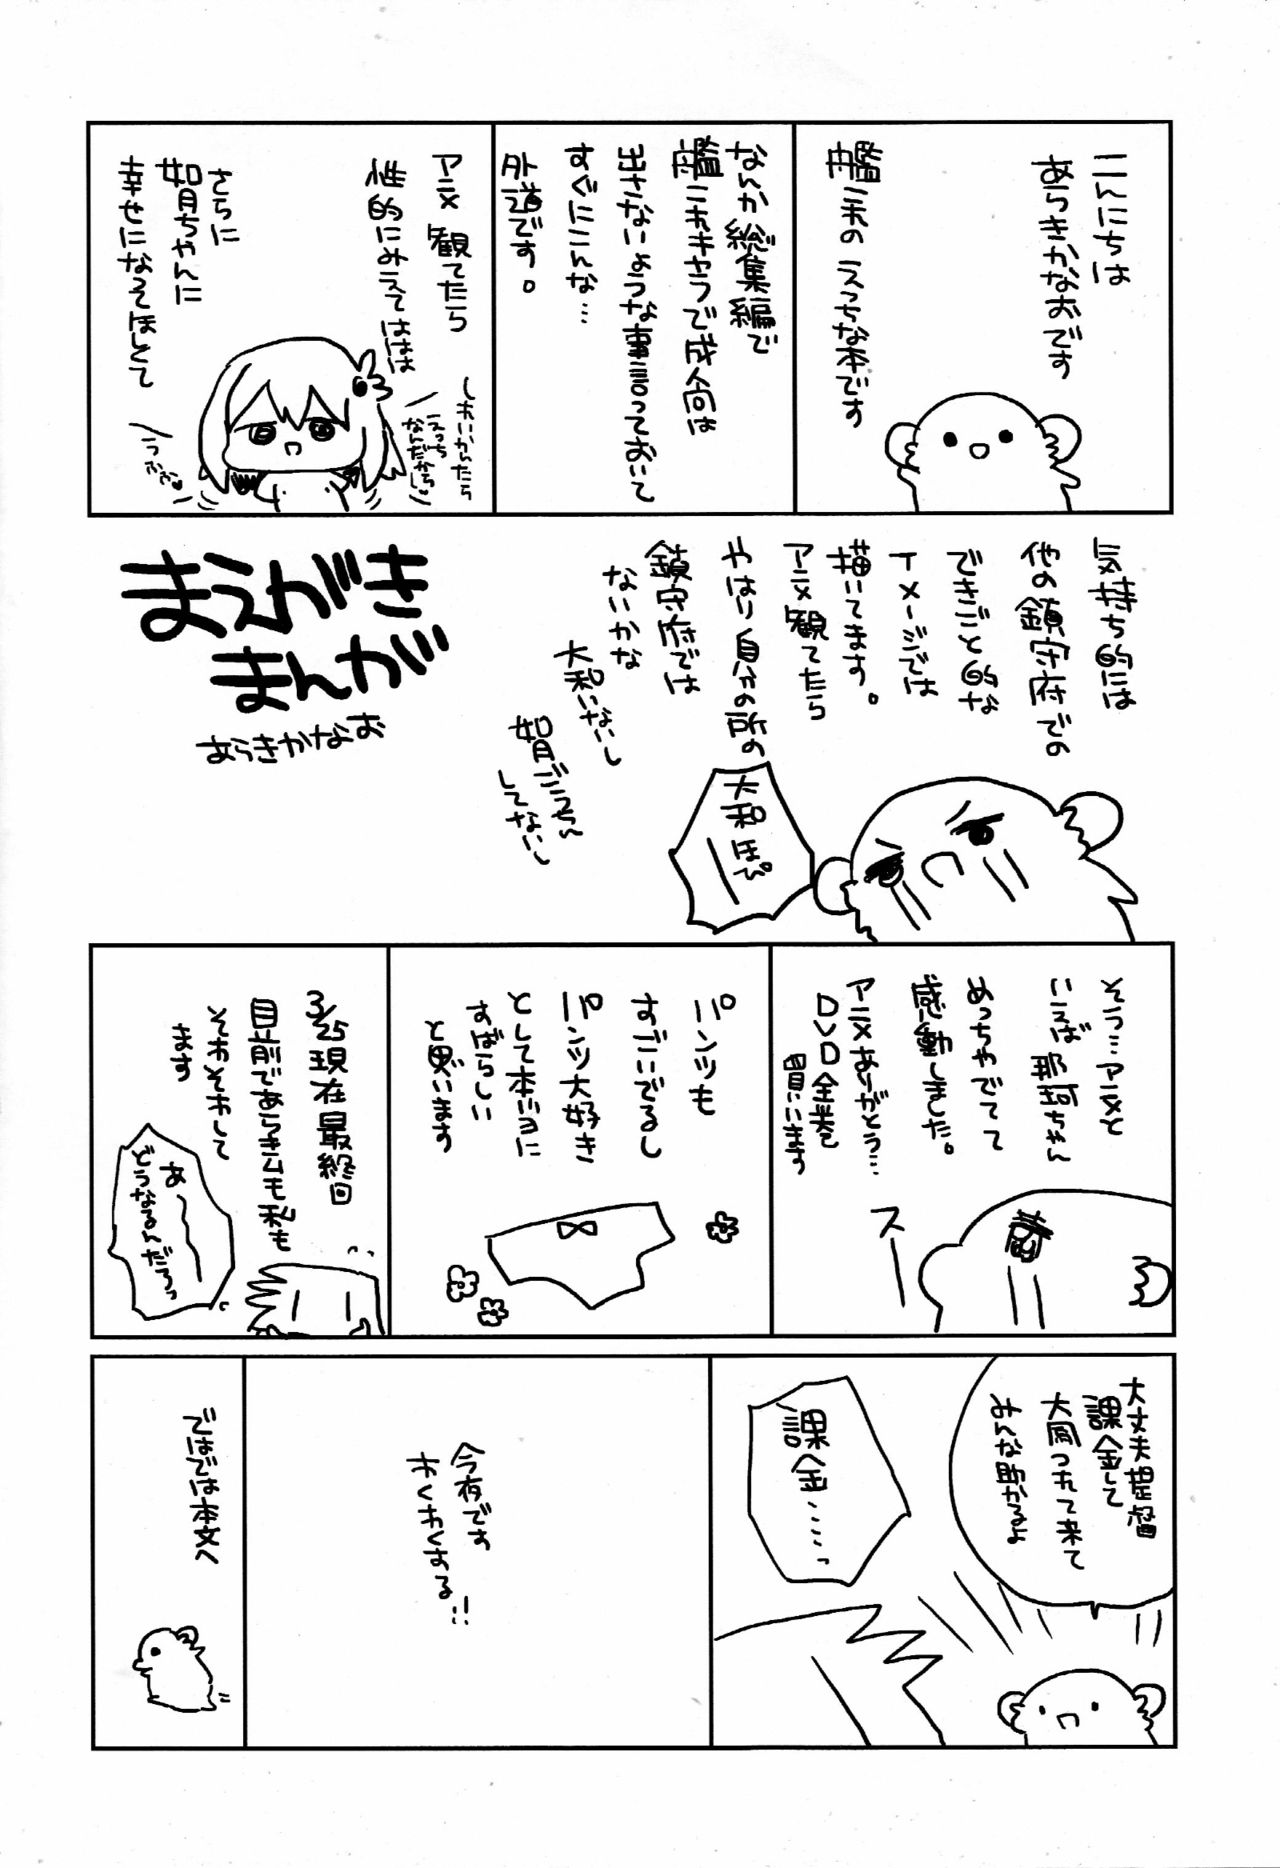 こんにちは
あらきかなおです
艦これの えっちな本です
なんか総集編で
艦これキャラで成人向は
出さないような事言っておいて
すぐにこんな…
外道です。
アニメ 観てたら
性的にみえてははは
さらに
如月ちゃんに
幸せになってほしくて
しれいかんたら
えっち
なんだから♡
うふふ♡
気持ち的には
他の鎮守府での
できごと的な
イメージでは
描いてます。
アニメ観てたら
やはり自分の所の
鎮守府では
ないかな
大和いないし
如月ごうちん
してないし
大和ほぴ
まえがき
まんが
あらきかなお
そう…アニメと
いえば 那珂ちゃん
めっちゃでてて
感動しました。
アニメありがとう…
DVD全巻
買います
スー
パンツも
すごいでるし
パンツ大好き
として本当に
すばらしい
と思います
3/25現在最終回
目前であらきムも私も
そわそわして
ます
あ〜
どうなるんだろっ
大丈夫提督
課金して
大鳳つれて来て
みんな助かるよ
課金……っ
今夜です
わくわくする!!
ではでは本文へ